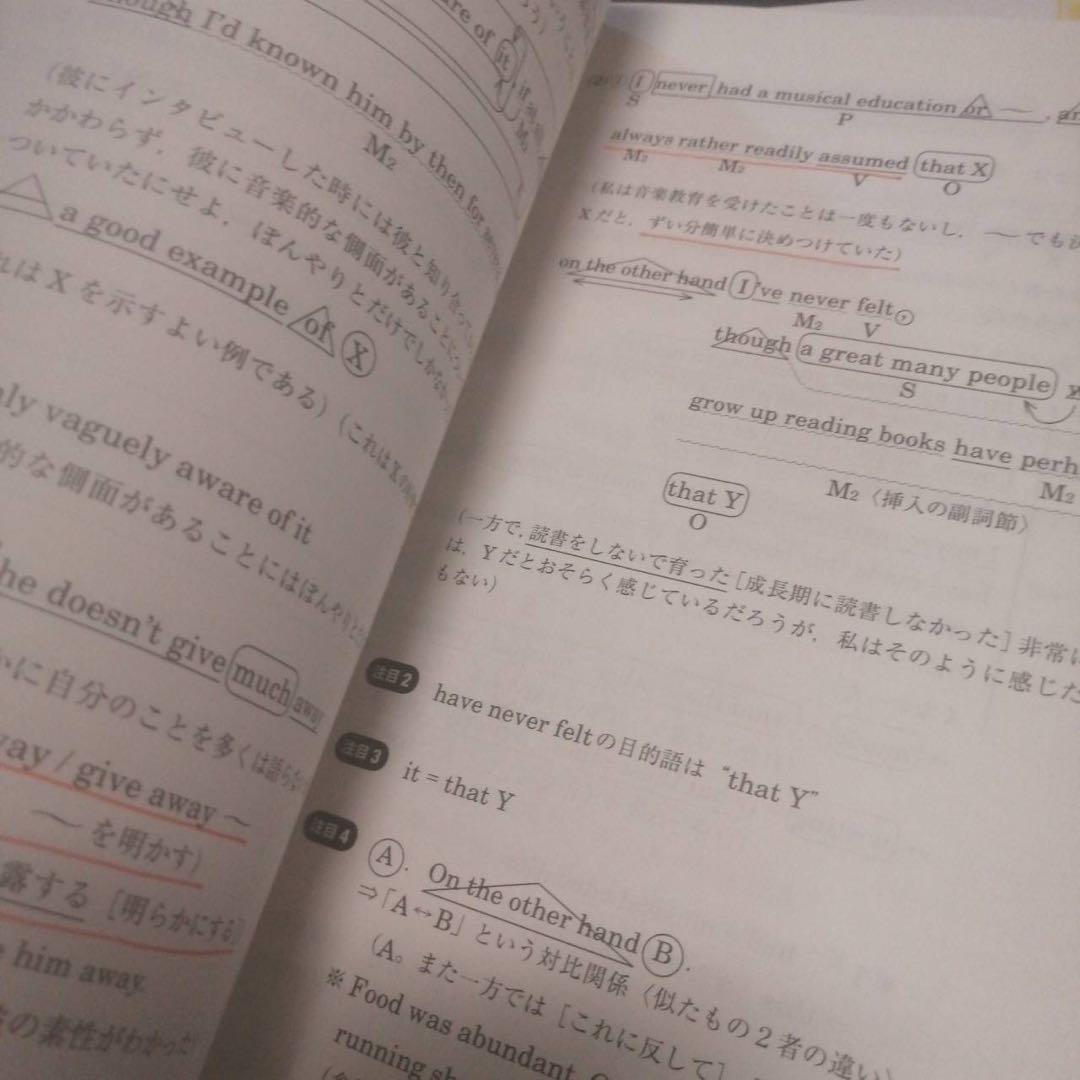 though I'd known him by then for
M₂
(彼にインタビューした時には彼と知り合って
かかわらず，彼に音楽的な側面があることに
ついていたにせよ，ぼんやりとだけでしかな
a good example of X
れは X を示すよい例である）（これは X の
nly vaguely aware of it
的な側面があることにはぼんやりと
he doesn't give much away
かに自分のことを多くは語らない
way / give away ～
～を明かす）
露する［明らかにする］
e him away.
の素性がわかった
are of it
I never had a musical education or ～ ,
S
P
always rather readily assumed that X
M₂ M₂ V O
（私は音楽教育を受けたことは一度もないし，～でも
X だと，ずい分簡単に決めつけていた）
on the other hand I've never felt,
M₂ V
though a great many people
S
grow up reading books have perh
M₂〈挿入の副詞節〉
M₂
that Y
O
（一方で，読書をしないで育った［成長期に読書しなかった］非常に
は，Y だとおそらく感じているだろうが，私はそのように感じた
もない）
注目2 have never felt の目的語は “that Y”
注目3 it = that Y
注目4 A. On the other hand B.
⇒「A↔B」という対比関係〈似たもの2者の違い〉
（A。また一方では［これに反して］
※ Food was abundant.
running